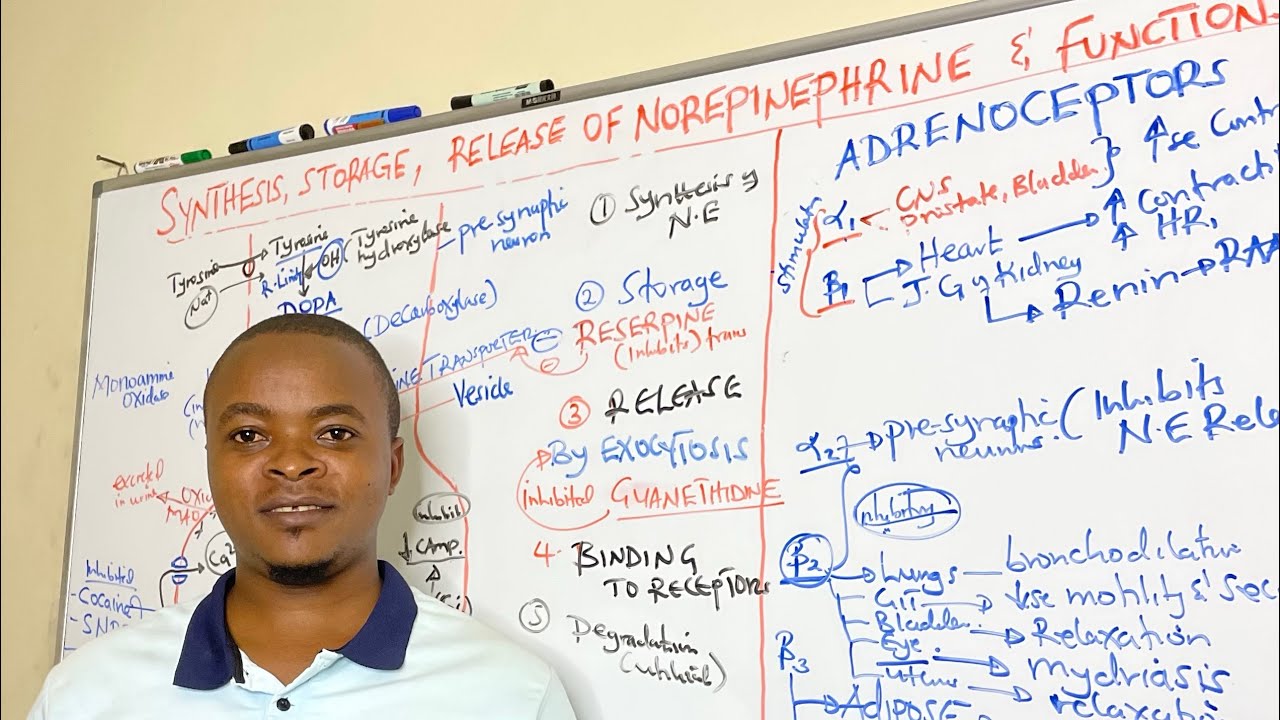 SYNTHESIS, STORAGE, RELEASE OF NOREPINEPHRINE & FUNCTION
MARKER
Tyrosine
Tyrosine
Na+
R. Limit
OH
(Tyrosine
hydroxylase
DOPA
(Decarboxylase)
pre synaptic
neuron
MONOAMINE
OXIDASE
TRANSPORTER
Vesicle
excreted
in urine
MAO
Ca2
Inhibited
- Cocaine
inhibit
↓ CAMP.
① Synthesis of
N.E
② Storage
RESERPINE
(inhibits) trans
③ RELEASE
By EXOCYTOSIS
inhibited GUANETHIDINE
4- BINDING
TO RECEPTORS
⑤ Degradation
ADRENOCEPTORS
α1
CNS
Prostate, Bladder
} ↑se Contr
β1
Heart
↑ Contracti
↑ HR,
J. G of Kidney
Renin → RAA
α2
pre-synaptic
neurons.
(Inhibits
N.E Rele
inhibiting
β2
Lungs — bronchodilation
GIT → ↓se motility & Sec
Bladder. → Relaxation
Eye. → mydriasis
uterus → relaxati
β3
ADIPOSE